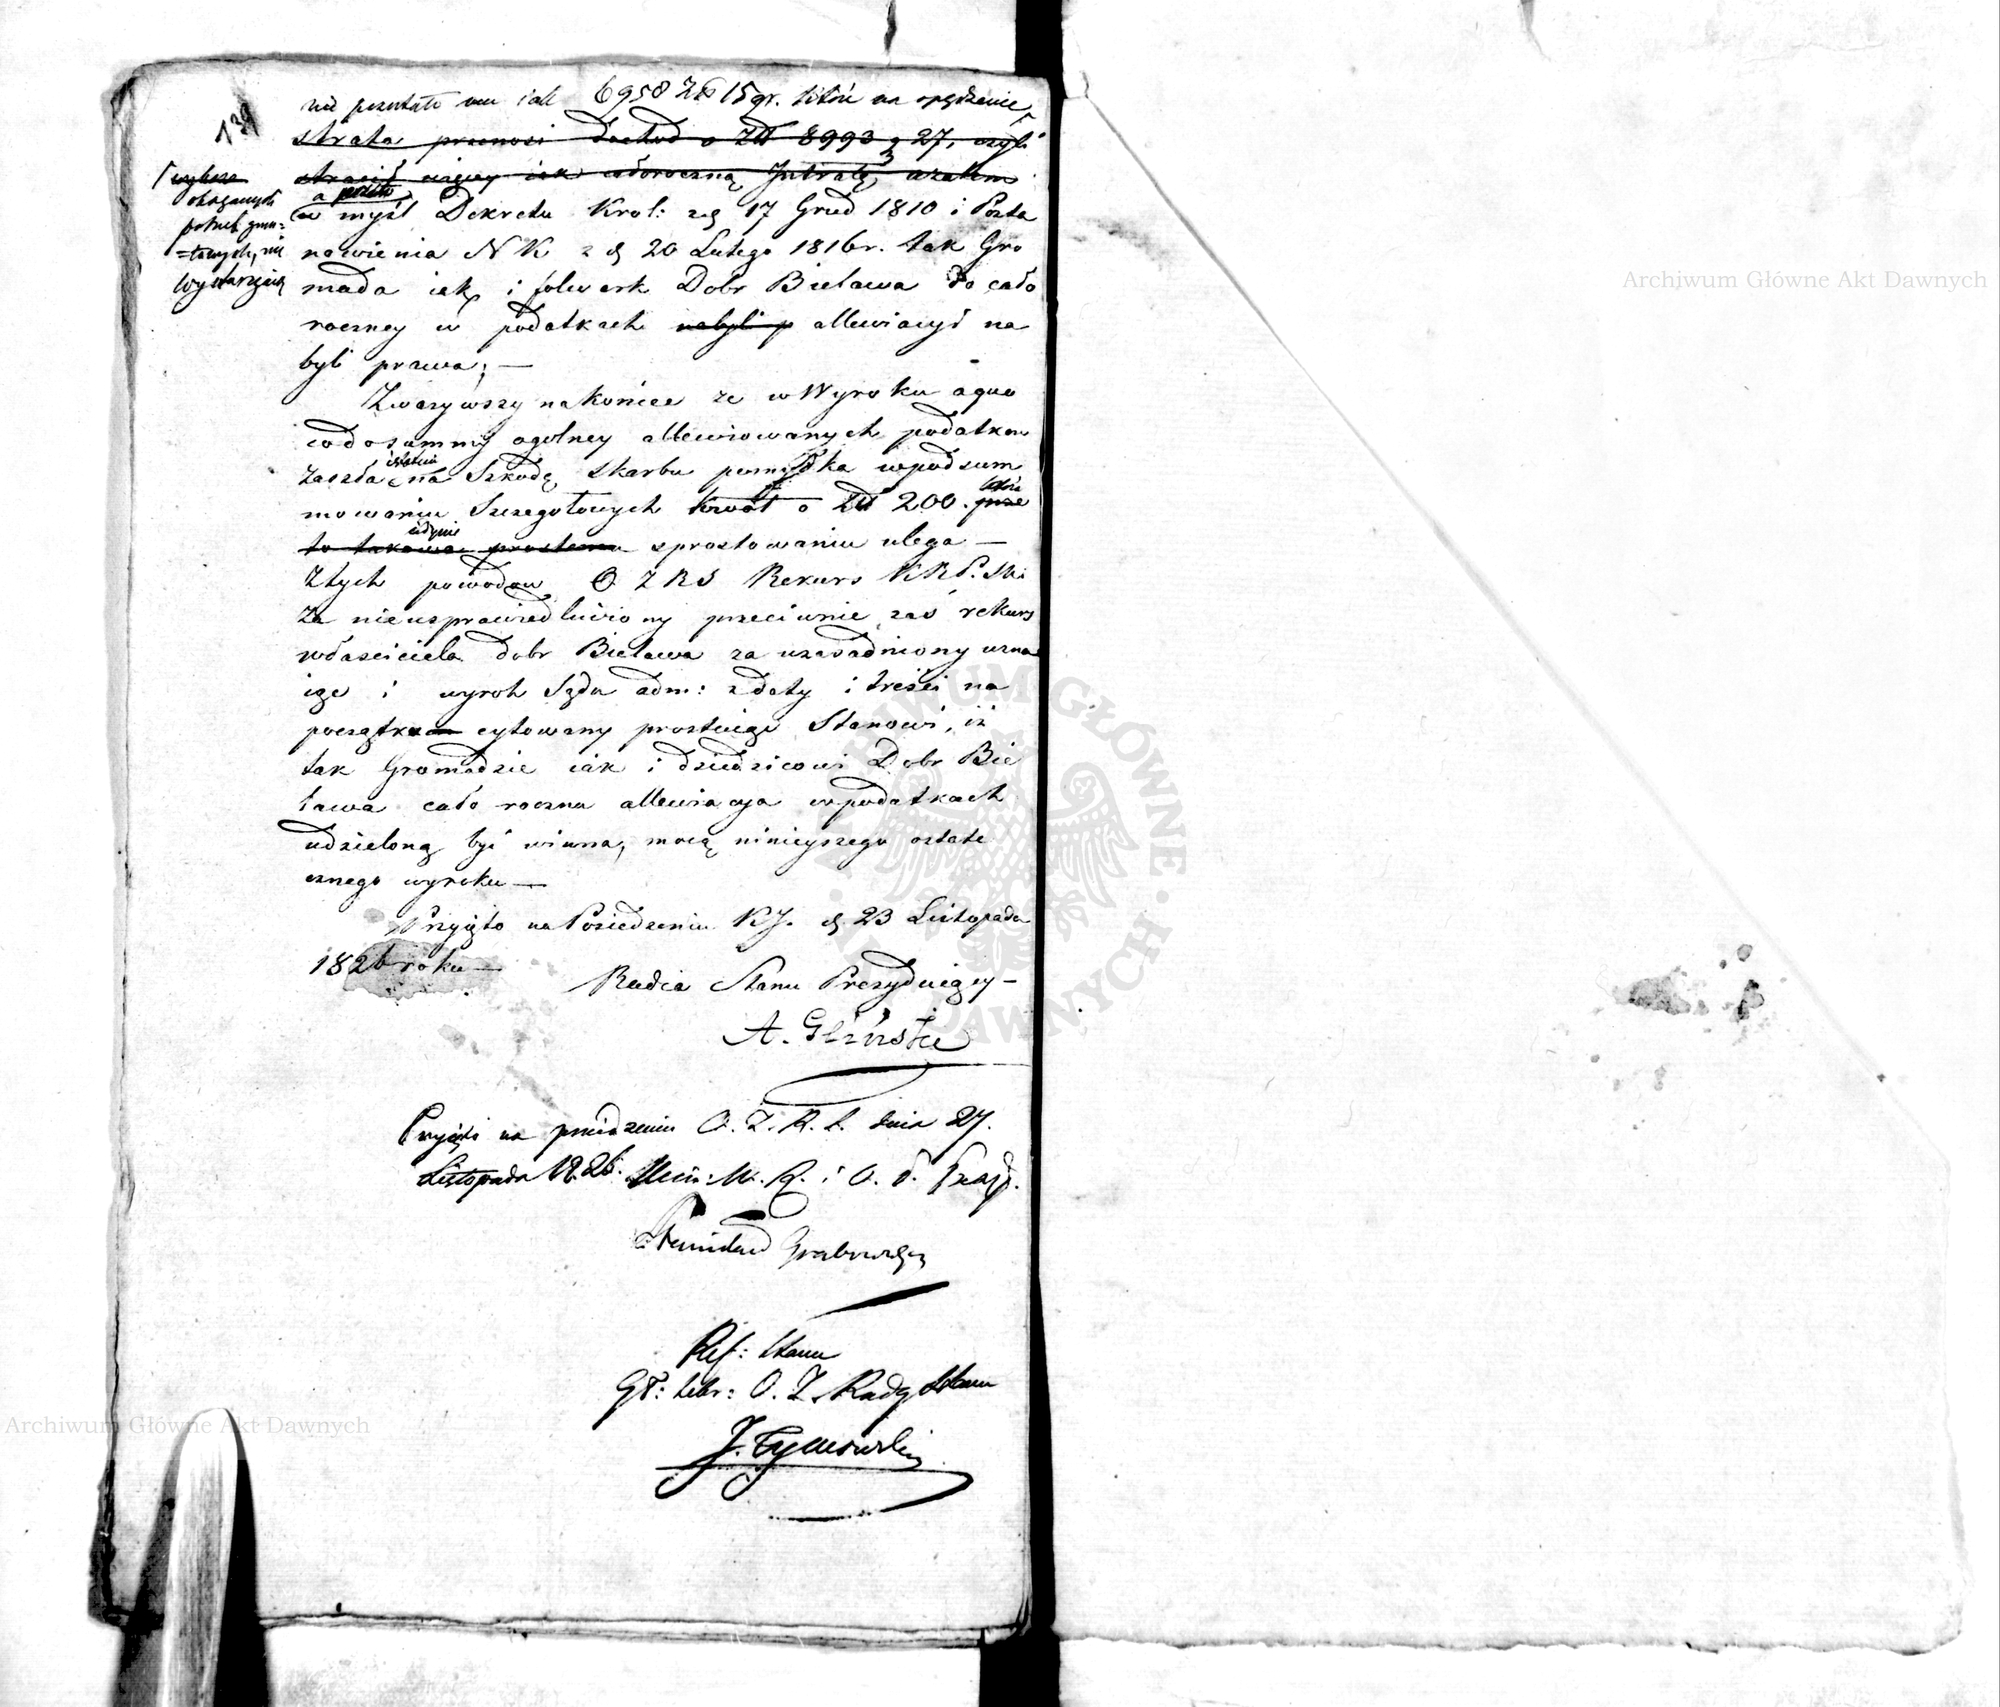 139
nie pozostało mu iak 6958 Zł 15 gr. które na opędzenie
strata przenosi dochod o Zł 8993 g 27, czyli
stracił więcey iak całoroczną Intratę, azatem
wyższe
okazanych
potrzeb grun=
=towych, nie
wystarczaią
a przeto
w myśl Dekretu Krol: z d 17 Grud 1810 i Posta
nowienia N K z d 20 Lutego 1816 r. tak Gro
mada iak i folwark Dobr Bielawa do cało
roczney w podatkach nabyli p allewiacyi na
byli prawa; —
Zważywszy nakoniec ze w Wyroku aquo
co do summy ogolney allewiowanych podatkow
zaszła istotnie na Szkodę skarbu pomyłka w podsum
mowaniu Szczegołowych kwot o Zł 200. która prze
to takowa prostemu iedynie sprostowaniu ulega —
Z tych powodow O Z R S Rekurs K R P. Ski
Za nieusprawiedliwiony przeciwnie zas rekurs
własciciela dobr Bielawa za uzasadniony uzna
iąc i wyrok Sądu adm: z daty i treści na
początku cytowany prostuiąc Stanowi, iż
tak Gromadzie iak i dziedzicowi Dobr Bie
lawa cało roczna allewiacya w podatkach
udzieloną być winna, mocą ninieyszego ostate
cznego wyroku —
Przyięto na Posiedzeniu K J. d 23 Listopada
1826 roku —
Radca Stanu Prezyduiący —
A. Gliński
Przyięto na posiedzeniu O. Z. R. S. dnia 27.
Listopada 1826. Min: W. R. i O. P. Prezyd.
Stanisław Grabowski
Ref: Stanu
Gł: Sekr: O. Z. Rady Stanu
J. Tymowski
Archiwum Główne Akt Dawnych
Archiwum Główne Akt Dawnych
ARCHIWUM GŁÓWNE AKT DAWNYCH